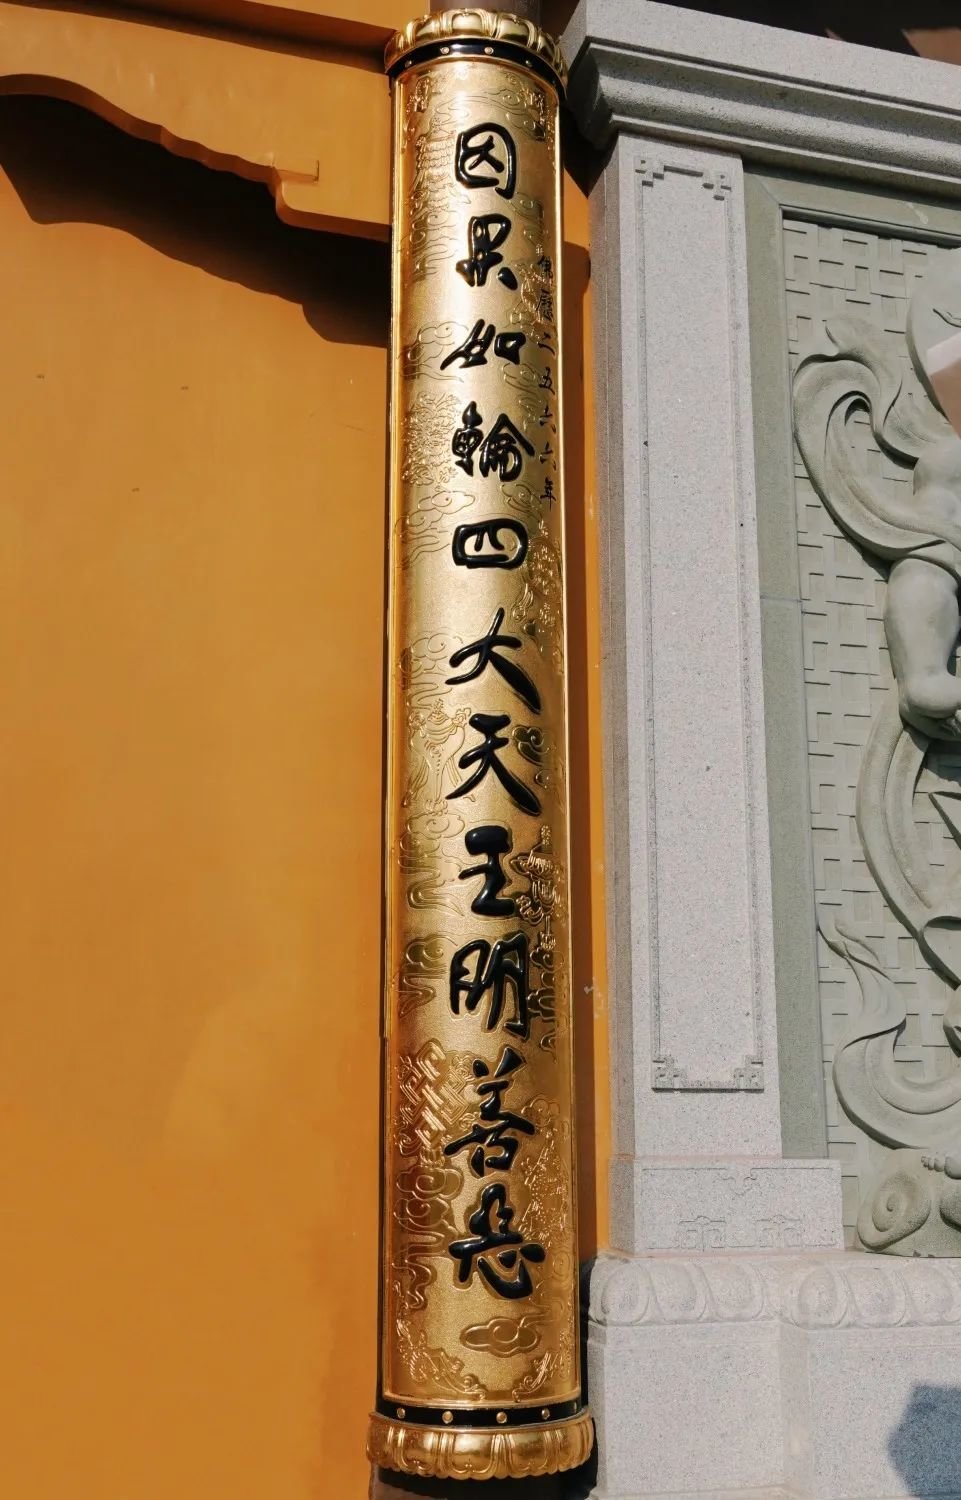 佛曆二五六六年
因果如輪四大天王明善惡